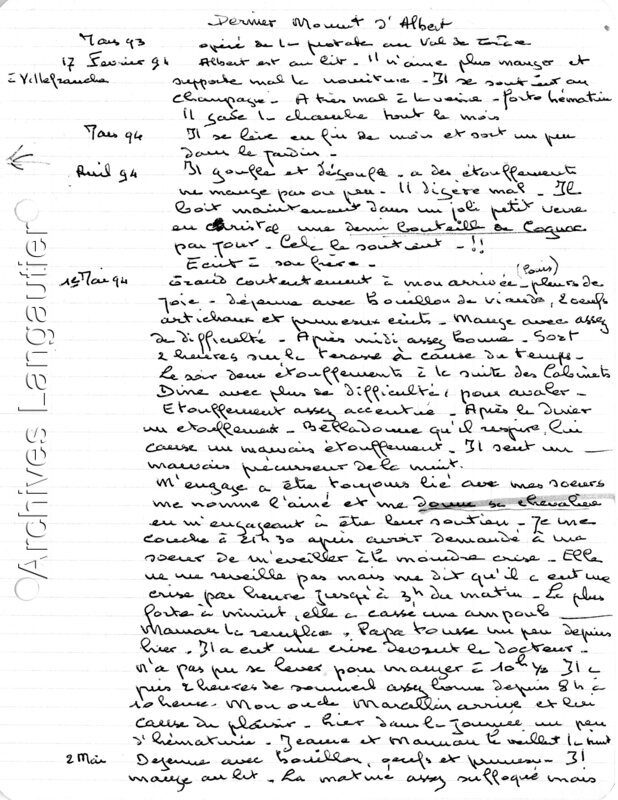 Dernier Moment d'Albert
Mars 93 opéré de la prostate au Val de Grâce
17 Fevrier 94 Albert est au lit - Il n'aime plus manger et
à Villefranche supporte mal la nourriture - Il se soutient au
champagne - A très mal à la vessie - forte hématurie
Il garde la chambre tout le mois
Mars 94 Il se lève en fin de mois et sort un peu
dans le jardin -
Avril 94 Il gonfle et dégonfle - a des étouffements
ne mange pas ou peu - Il digère mal - Il
boit maintenant dans un joli petit verre
en cristal une demi bouteille de Cognac
par jour - Cela le soutient - !!
Ecrit à son frère -
1er Mai 94 Grand contentement à mon arrivée (Louis) - pleurs de
joie - déjeune avec bouillon de viande, 2 oeufs
artichaux et pruneaux cuits - Mange avec assez
de difficulté - Après midi assez bonne - Sort
2 heures sur la terrasse à cause du temps -
Le soir deux étouffements à la suite des Cabinets
Dine avec plus de difficultés pour avaler -
Etouffement assez accentué - Après le diner
un etouffement - Belladonne qu'il respire lui
cause un mauvais étouffement - Il sent un
mauvais précurseur de la nuit.
M'engage a être toujours lié avec mes soeurs
me nomme l'ainé et me donne sa chevalière
en m'engageant à être leur soutien - Je me
couche à 21h30 après avoir demandé à ma
soeur de m'eveiller à la moindre crise - Elle
ne me reveille pas mais me dit qu'il a eut une
crise par heure jusqu'à 3h du matin - La plus
forte à minuit, elle a cassé une ampoule
Maman la remplace - Papa tousse un peu depuis
hier - Il a eut une crise devant le docteur -
n'a pas pu se lever pour manger à 10h 1/2 Il a
pris 2 heures de sommeil assez bonne depuis 8h à
10 heure - Mon oncle Marcellin arrive et lui
cause du plaisir - hier dans la journée un peu
d'hématurie - Jeanne et Maman le veillent la nuit
2 Mai Dejeune avec bouillon, oeufs et pruneau - Il
mange au lit - La matiné assez suffoqué mais
©Archives Langautier